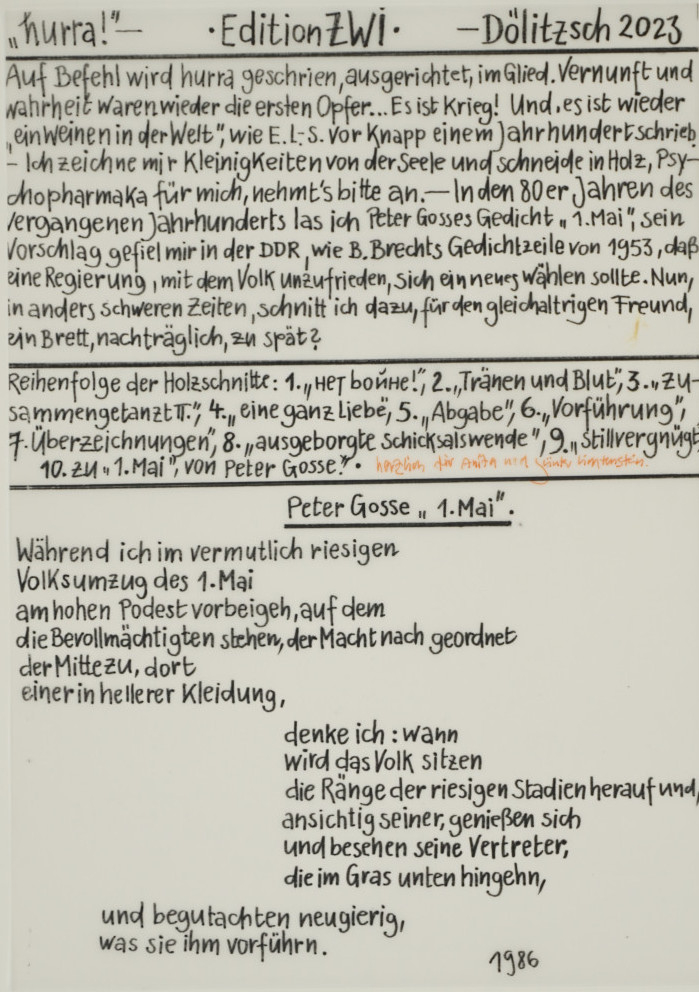 „hurra!“— ·Edition ZWI· —Dölitzsch 2023
Auf Befehl wird hurra geschrien, ausgerichtet, im Glied. Vernunft und
Wahrheit waren wieder die ersten Opfer... Es ist Krieg! Und, es ist wieder
„ein Weinen in der Welt“, wie E.L.-S. vor knapp einem Jahrhundert schrieb
– Ich zeichne mir Kleinigkeiten von der Seele und schneide in Holz, Psy-
chopharmaka für mich, nehmt's bitte an.— In den 80er Jahren des
vergangenen Jahrhunderts las ich Peter Gosses Gedicht „1.Mai“, sein
Vorschlag gefiel mir in der DDR, wie B. Brechts Gedichtzeile von 1953, daß
eine Regierung, mit dem Volk unzufrieden, sich ein neues wählen sollte. Nun,
in anders schweren Zeiten, schnitt ich dazu, für den gleichaltrigen Freund,
ein Brett, nachträglich, zu spät?
Reihenfolge der Holzschnitte: 1. „нет войне!“, 2. „Tränen und Blut“, 3. „zu-
sammengetanzt II.“, 4. „eine ganz Liebe“, 5. „Abgabe“, 6. „Vorführung“,
7. Überzeichnungen“, 8. „ausgeborgte Schicksalswende“, 9. „Stillvergnügt
10. zu „1.Mai“, von Peter Gosse.“· herzlich für Anita und
Peter Gosse „1.Mai“.
Während ich im vermutlich riesigen
Volksumzug des 1.Mai
am hohen Podest vorbeigeh, auf dem
die Bevollmächtigten stehen, der Macht nach geordnet
der Mitte zu, dort
einer in hellerer Kleidung,
denke ich: wann
wird das Volk sitzen
die Ränge der riesigen Stadien herauf und,
ansichtig seiner, genießen sich
und besehen seine Vertreter,
die im Gras unten hingehn,
und begutachten neugierig,
was sie ihm vorführn.
1986